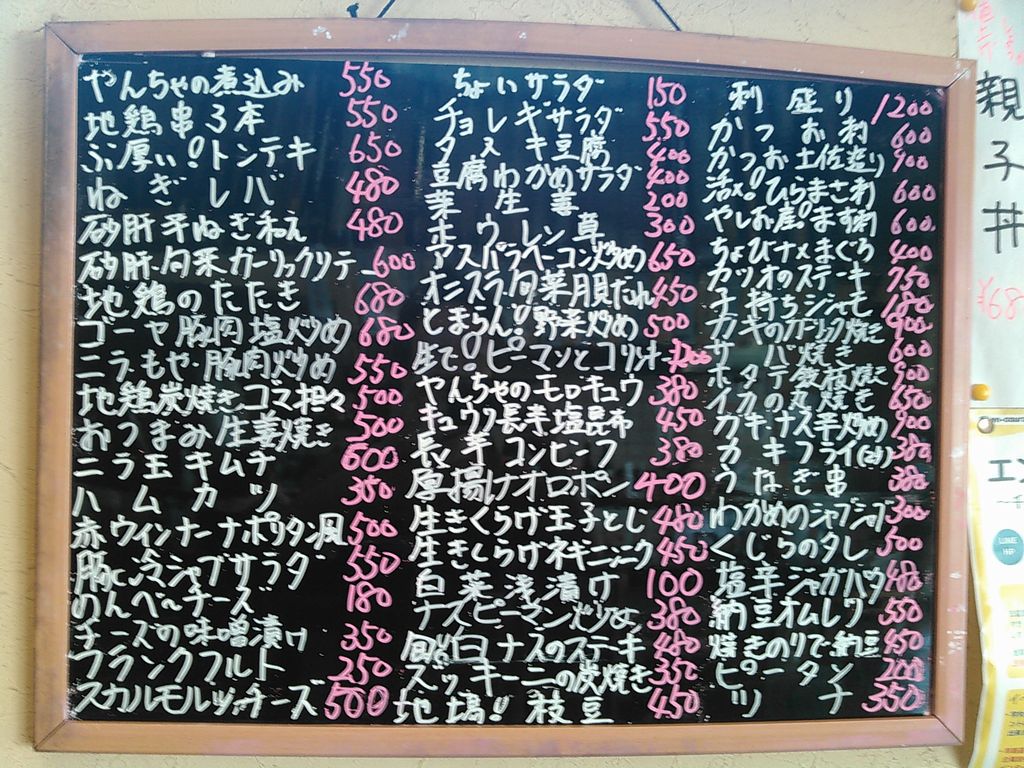 やんちゃの煮込み 550
地鶏串3本 550
ぶ厚い!トンテキ 650
ねぎレバ 480
砂肝辛ねぎ和え 480
砂肝・旬菜ガーリックソテー 600
地鶏のたたき 680
ゴーヤ豚肉塩炒め 680
ニラもや・豚肉炒め 550
地鶏炭焼きゴマ担々 500
おつまみ生姜焼き 500
ニラ玉キムチ 600
ハムカツ 350
赤ウィンナーナポリタン風 500
豚冷シャブサラダ 550
のんべ〜チーズ 180
チーズの味噌漬け 350
フランクフルト 250
スカルモルツァチーズ 500
ちょいサラダ 150
チョレギサラダ 550
タヌキ豆腐 400
豆腐わかめサラダ 400
葉生姜 200
ホウレン草 300
アスパラベーコン炒め 650
オニスラ旬菜胆だれ 450
とまらん!野菜炒め 500
生で!ピーマンとコリオ
やんちゃのモロキュウ 380
キュウリ長芋塩昆布 450
長芋コンビーフ 380
厚揚げオロポン 400
生きくらげ玉子とじ 480
生きくらげネギニンニク 450
白菜浅漬け 100
ナスピーマン炒め 380
旬!白ナスのステーキ 480
ズッキーニの炭焼き 350
地場!枝豆 450
刺盛り 1200
かつお刺 600
かつお土佐造り 900
活〆!ひらまさ刺 600
やしお産!ます刺 600
ちょびナメまぐろ 400
カツオのステーキ 750
子持ちシシャモ 180
カキのガーリック焼き 900
サバ焼き 600
ホタテ殻焼き 900
イカの丸焼き 650
カキ・ナス辛炒め 900
カキフライ 380
うなぎ串 380
わかめのシャブシャブ 300
くじらのタレ 500
塩辛ジャガバタ 480
納豆オムレツ 550
焼きのりで納豆 450
ピータン 200
ツナ 350
親子丼
¥68
エン